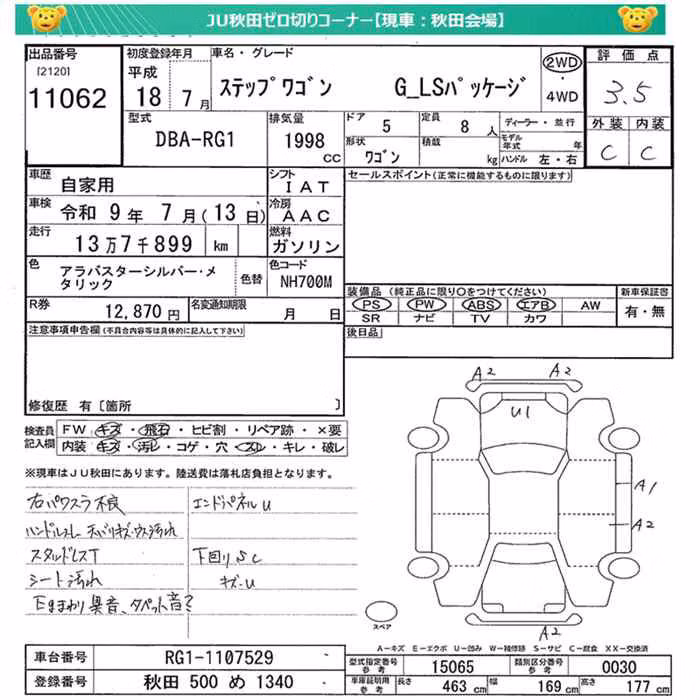 JU秋田ゼロ切りコーナー【現車：秋田会場】
出品番号
[2120]
11062
初度登録年月
平成
18 7月
車名・グレード
ステップワゴン G_LSパッケージ
2WD
・
4WD
評価点
3.5
外装 内装
C C
型式
DBA-RG1
排気量
1998
CC
ドア 5
定員 8 人
ディーラー・並行
モデル年式 年
形状
ワゴン
積載
kg
ハンドル 左・右
車歴
自家用
シフト
IAT
車検
令和 9年 7月(13日)
冷房
AAC
走行
13万7千899 km
燃料
ガソリン
色
アラバスターシルバー・メタリック
色替
色コード
NH700M
R券
12,870円
名変通知期限
月 日
セールスポイント(正常に機能するものに限ります)
装備品 (純正品に限り○をつけてください)
新車保証書
PS PW ABS エアB AW
SR ナビ TV カワ
有・無
後日品
注意事項申告欄(不具合内容等は具体的に記入して下さい)
修復歴 有〔箇所 〕
検査員
記入欄
FW キズ・飛石・ヒビ割・リペア跡・×要
内装 キズ・汚レ・コゲ・穴・スレ・キレ・破レ
※現車はJU秋田にあります。陸送費は落札店負担となります。
右パワスラ不良
エンドパネルU
ハンドルスレ
スタッドレスT
下回りS C
シート汚れ
キズ・U
Eまわり異音、タペット音?
A2 A2
U1
A1
A2
A2
スペア
A-キズ E-エクボ U-凹み W-補修跡 S-サビ C-腐食 XX-交換済
車台番号
RG1-1107529
登録番号
秋田 500 め 1340
型式指定番号
参考
15065
類別区分番号
参考
0030
車庫証明用
参考
長さ 463 cm
幅 169 cm
高さ 177 cm